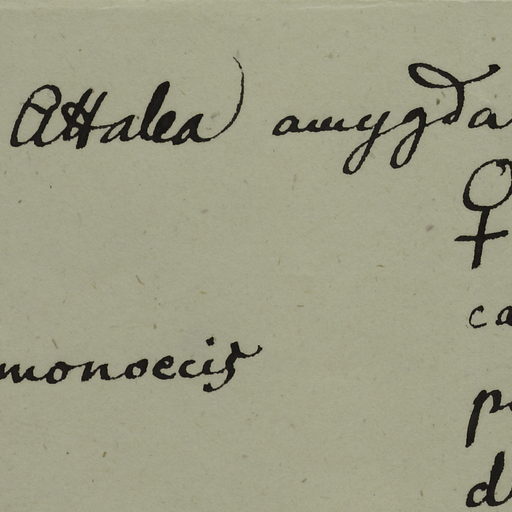 Attalea amygda
♀
ca
monoecis
p
d